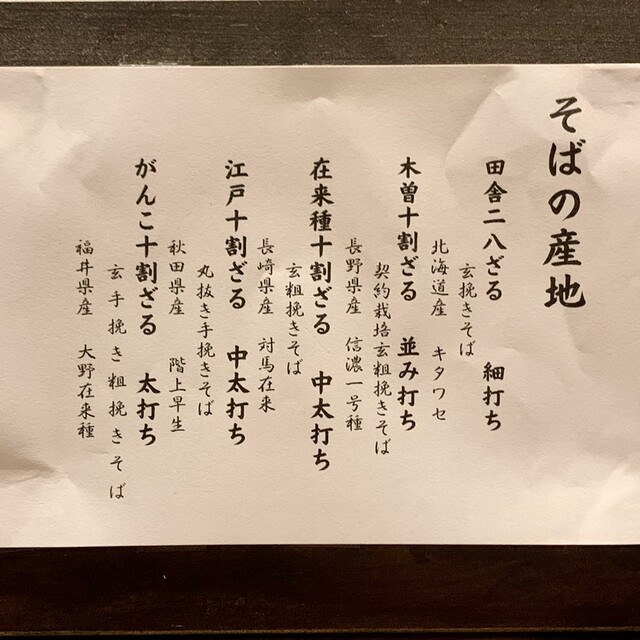 そばの産地
田舎二八ざる 細打ち
玄挽きそば
北海道産 キタワセ
木曽十割ざる 並み打ち
契約栽培玄粗挽きそば
長野県産 信濃一号種
在来種十割ざる 中太打ち
玄粗挽きそば
長崎県産 対馬在来
江戸十割ざる 中太打ち
丸抜き手挽きそば
秋田県産 階上早生
がんこ十割ざる 太打ち
玄手挽き粗挽きそば
福井県産 大野在来種